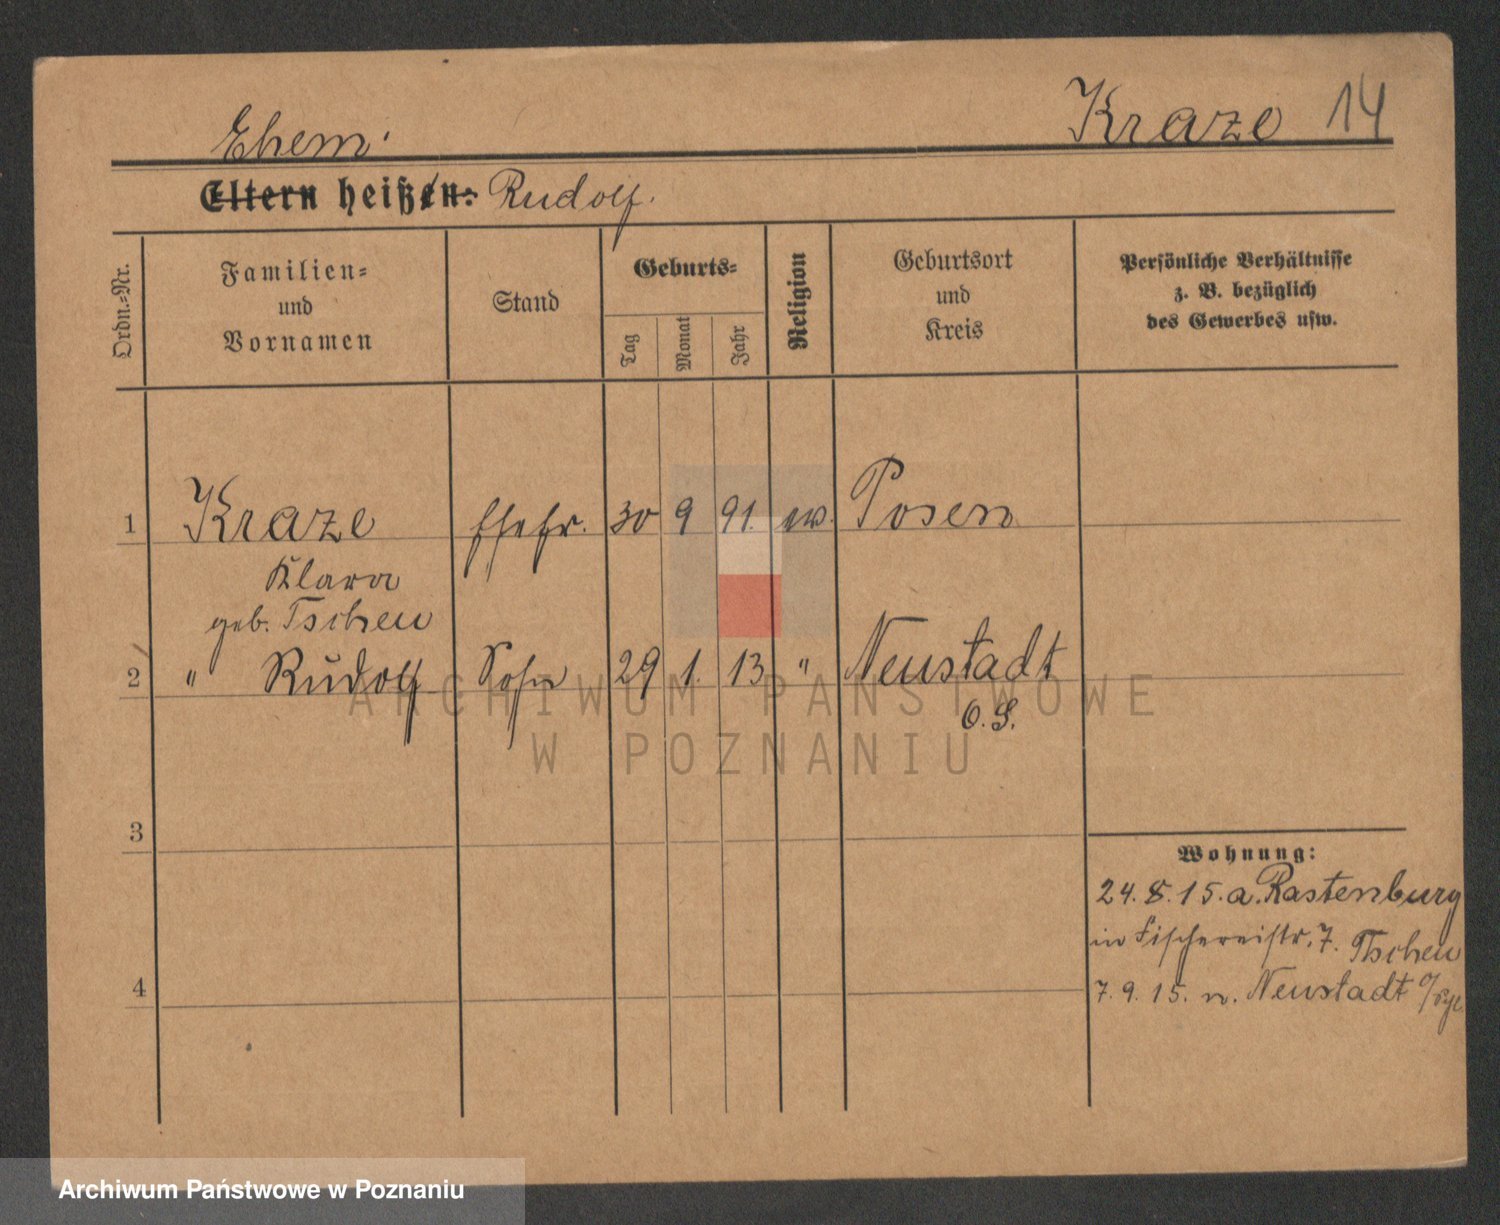 Kraze 14
Ehem.
Eltern heißen: Rudolf.
Ordn.-Nr.
Familien-
und
Vornamen
Stand
Geburts-
Tag
Monat
Jahr
Religion
Geburtsort
und
Kreis
Persönliche Verhältnisse
z. B. bezüglich
des Gewerbes usw.
1 Kraze Ehefr. 30 9 91. ev. Posen
Klara
geb. Tschen
2 " Rudolf Sohn 29 1. 13 " Neustadt
O. S.
3
4
Wohnung:
24. 8. 15. a. Rastenburg
in Fischereistr. 7. Tschen
7. 9. 15. n. Neustadt
ARCHIWUM PAŃSTWOWE
W POZNANIU
Archiwum Państwowe w Poznaniu